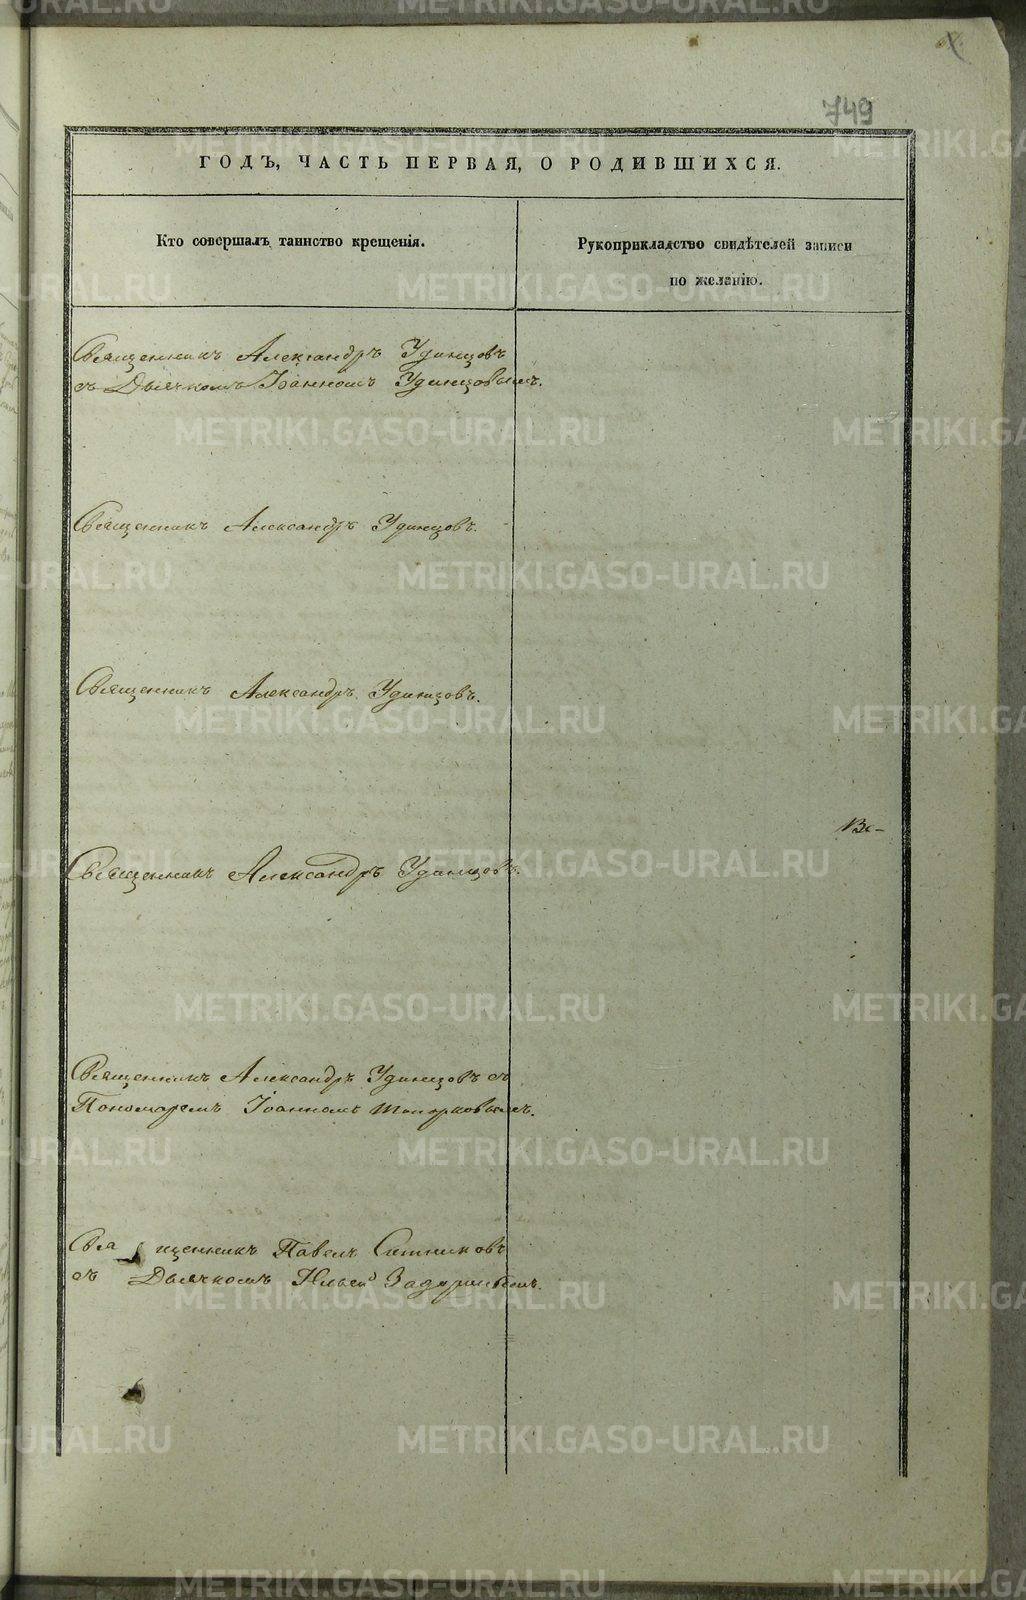 749
ГОДЪ, ЧАСТЬ ПЕРВАЯ, О РОДИВШИХСЯ.
Кто совершалъ таинство крещенія.
Рукоприкладство свидѣтелей записи
по желанію.
Священникъ Александръ Удинцовъ
съ Дьячкомъ Іоанномъ Удинцовымъ.
Священникъ Александръ Удинцовъ.
Священникъ Александръ Удинцовъ.
Священникъ Александръ Удинцовъ.
Священникъ Александръ Удинцовъ съ
Пономаремъ Іоанномъ
Священникъ Павелъ Ситниковъ
съ Дьячкомъ Ильею
METRIKI.GASO-URAL.RU